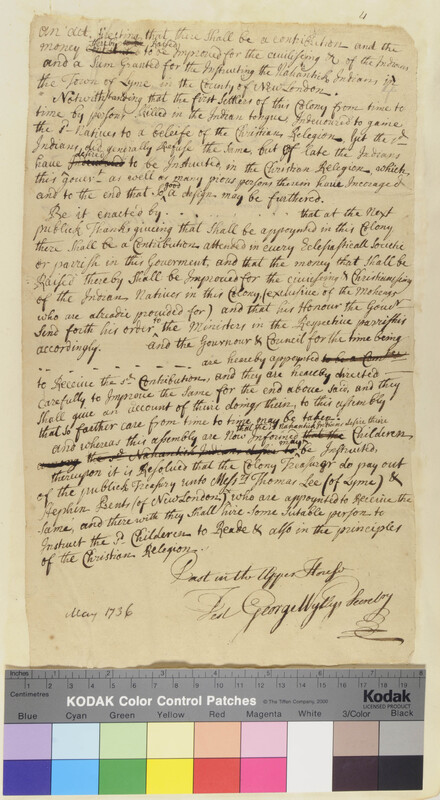 4
an act Directing that there Shall be a contribution and the
money thereby Raised to be Improved for the civilising &c of the Indians
and a Sum Granted for the Instructing the Nahantick Indians in
the Town of Lyme in the County of New London.
Notwithstanding that the first Setlers of this Colony from time to
time by persons Skilled in the Indian tongue Indevoured to
the sd Natives to a beleife of the Christians Relegion, yet the sd
Indians did generally Refuse the Same, but of late the Indians
have desire to be Instructed in the Christian Religion, which
this Govermt as well as many pious persons therein have Incoraged
and to the end that So good design may be furthered.
Be it enacted by . . . . . . . . that at the Next
publick Thanksgiving that Shall be appoynted in this Colony
there Shall be a Contribution attended in every Eclesiasticall Societie
or parrish in this Goverment, and that the money that Shall be
Raised thereby Shall be Improved for the civilising & Christianising
of the Indian Natives in this Colony (exclusive of the Mohegs
who are alreadie provided for) and that his Honour the Govr
Send forth his order to the Ministers in the Respective parrishes
accordingly. and the Governour & Council for the time being
are hereby appoynted
to Receive the sd Contribution, and they are hereby directed
carefully to Improve the Same for the end above said, and they
Shall give an account of there doings therein to this assembly
that So farther care from time to time may be taken.
that the Nahantick Indians desire there
and whereas this assembly are Now Informed that the Childeren
may be Instructed,
thereupon it is Resolved that the Colony Treasurer do pay out
of the publick Treasury unto Messrs Thomas Lee (of Lyme) &
Stephen (of New London) who are appoynted to Receive the
same, and there with they Shall hire Some Sutable person to
Instruct the sd Childeren to Reade & also in the principles
of the Christian Relegion.
Past in the Upper House
Test George Wyllys Secretry
May 1736
Inches 1 2 3 4 5 6 7 8
Centimetres 1 2 3 4 5 6 7 8 9 10 11 12 13 14 15 16 17 18 19
KODAK Color Control Patches © The Tiffen Company, 2000 Kodak
LICENSED PRODUCT
Blue Cyan Green Yellow Red Magenta White 3/Color Black